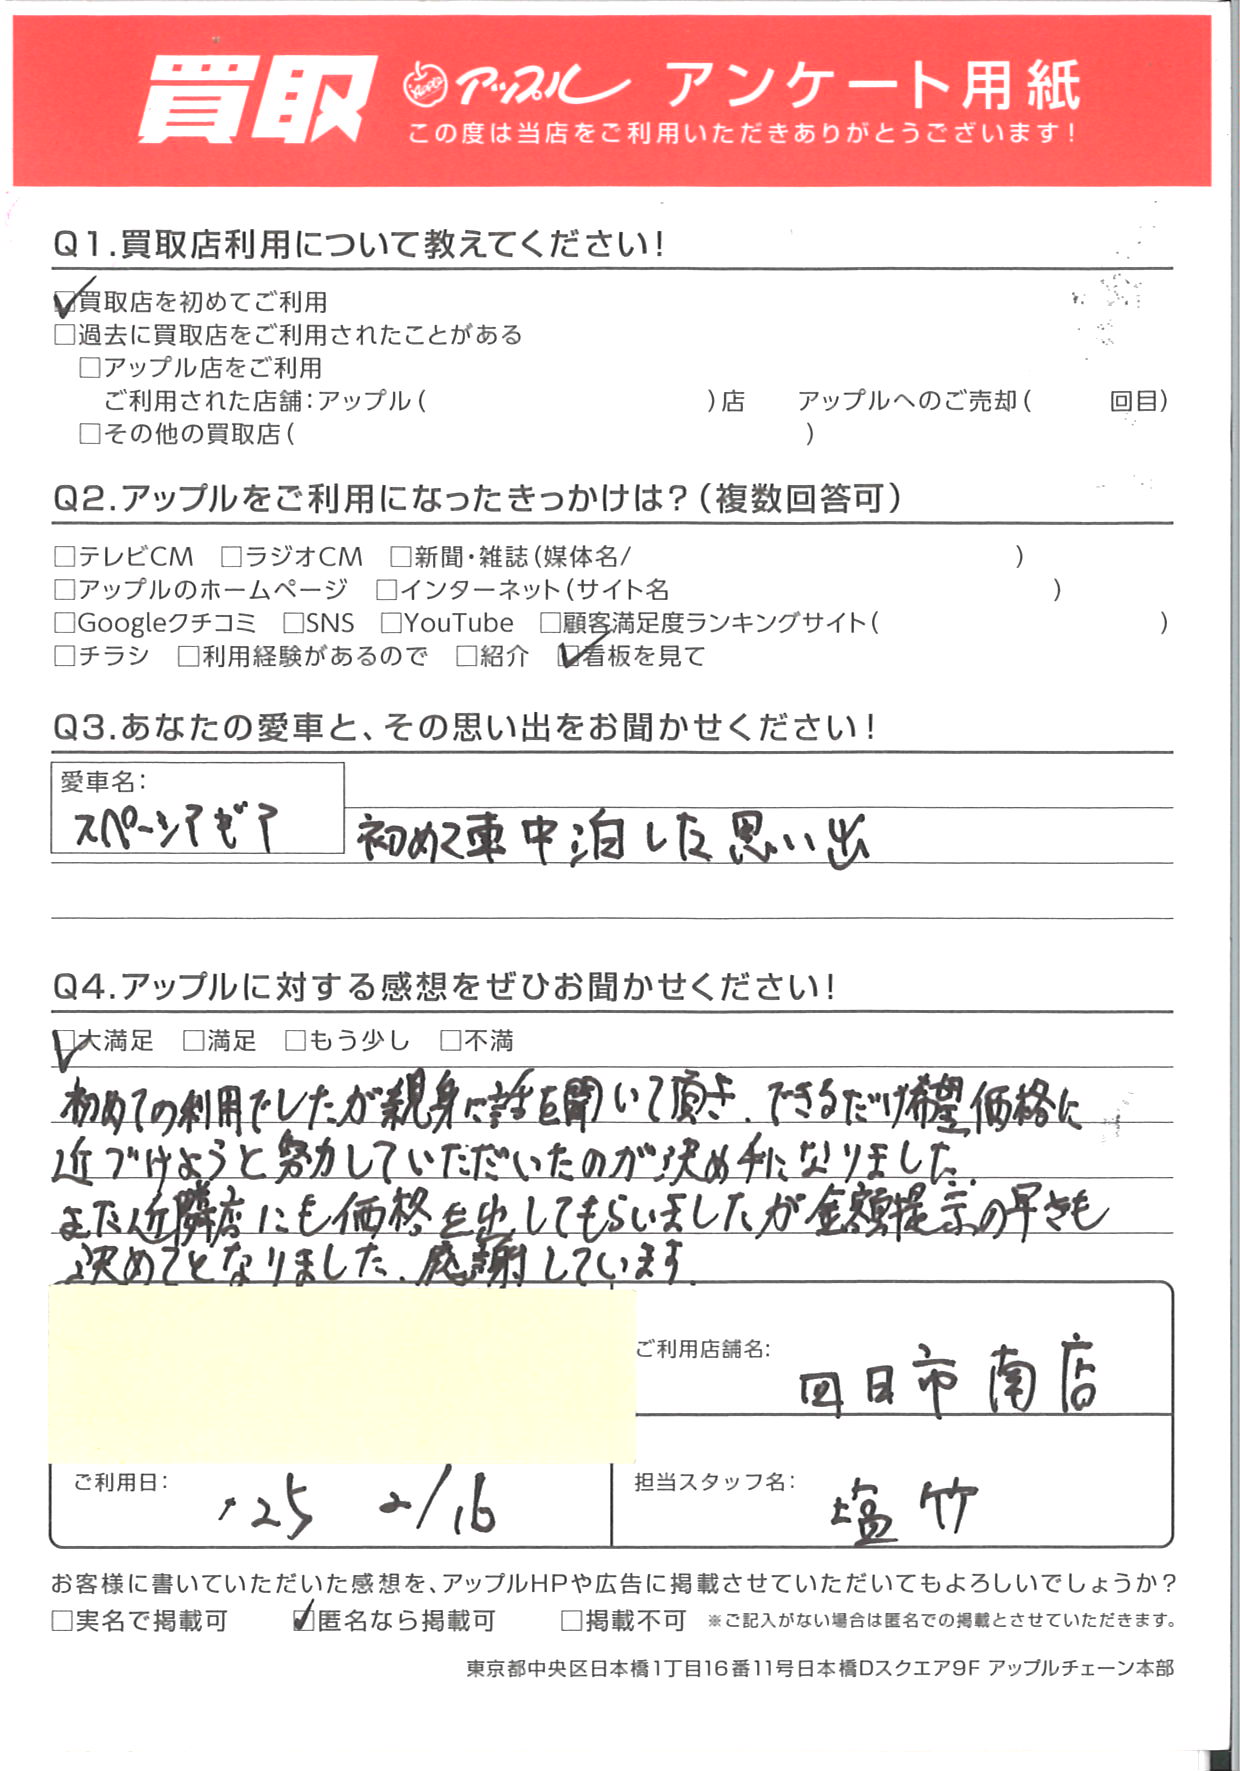 買取 アップル アンケート用紙
この度は当店をご利用いただきありがとうございます!
Q1.買取店利用について教えてください!
☑買取店を初めてご利用
□過去に買取店をご利用されたことがある
□アップル店をご利用
ご利用された店舗:アップル( )店 アップルへのご売却( 回目)
□その他の買取店( )
Q2.アップルをご利用になったきっかけは?(複数回答可)
□テレビCM □ラジオCM □新聞・雑誌(媒体名/ )
□アップルのホームページ □インターネット(サイト名 )
□Googleクチコミ □SNS □YouTube □顧客満足度ランキングサイト( )
□チラシ □利用経験があるので □紹介 ☑看板を見て
Q3.あなたの愛車と、その思い出をお聞かせください!
愛車名:
スペーシアギア 初めて車中泊した思い出
Q4.アップルに対する感想をぜひお聞かせください!
☑大満足 □満足 □もう少し □不満
初めての利用でしたが親身に話を聞いて頂き、できるだけ希望価格に
近づけようと努力していただいたのが決め手になりました。
また近隣店にも価格を出してもらいましたが金額提示の早さも
決めてとなりました。感謝しています。
ご利用店舗名: 四日市南店
ご利用日: '25 2/16 担当スタッフ名: 塩竹
お客様に書いていただいた感想を、アップルHPや広告に掲載させていただいてもよろしいでしょうか?
□実名で掲載可 ☑匿名なら掲載可 □掲載不可 ※ご記入がない場合は匿名での掲載とさせていただきます。
東京都中央区日本橋1丁目16番11号日本橋Dスクエア9F アップルチェーン本部